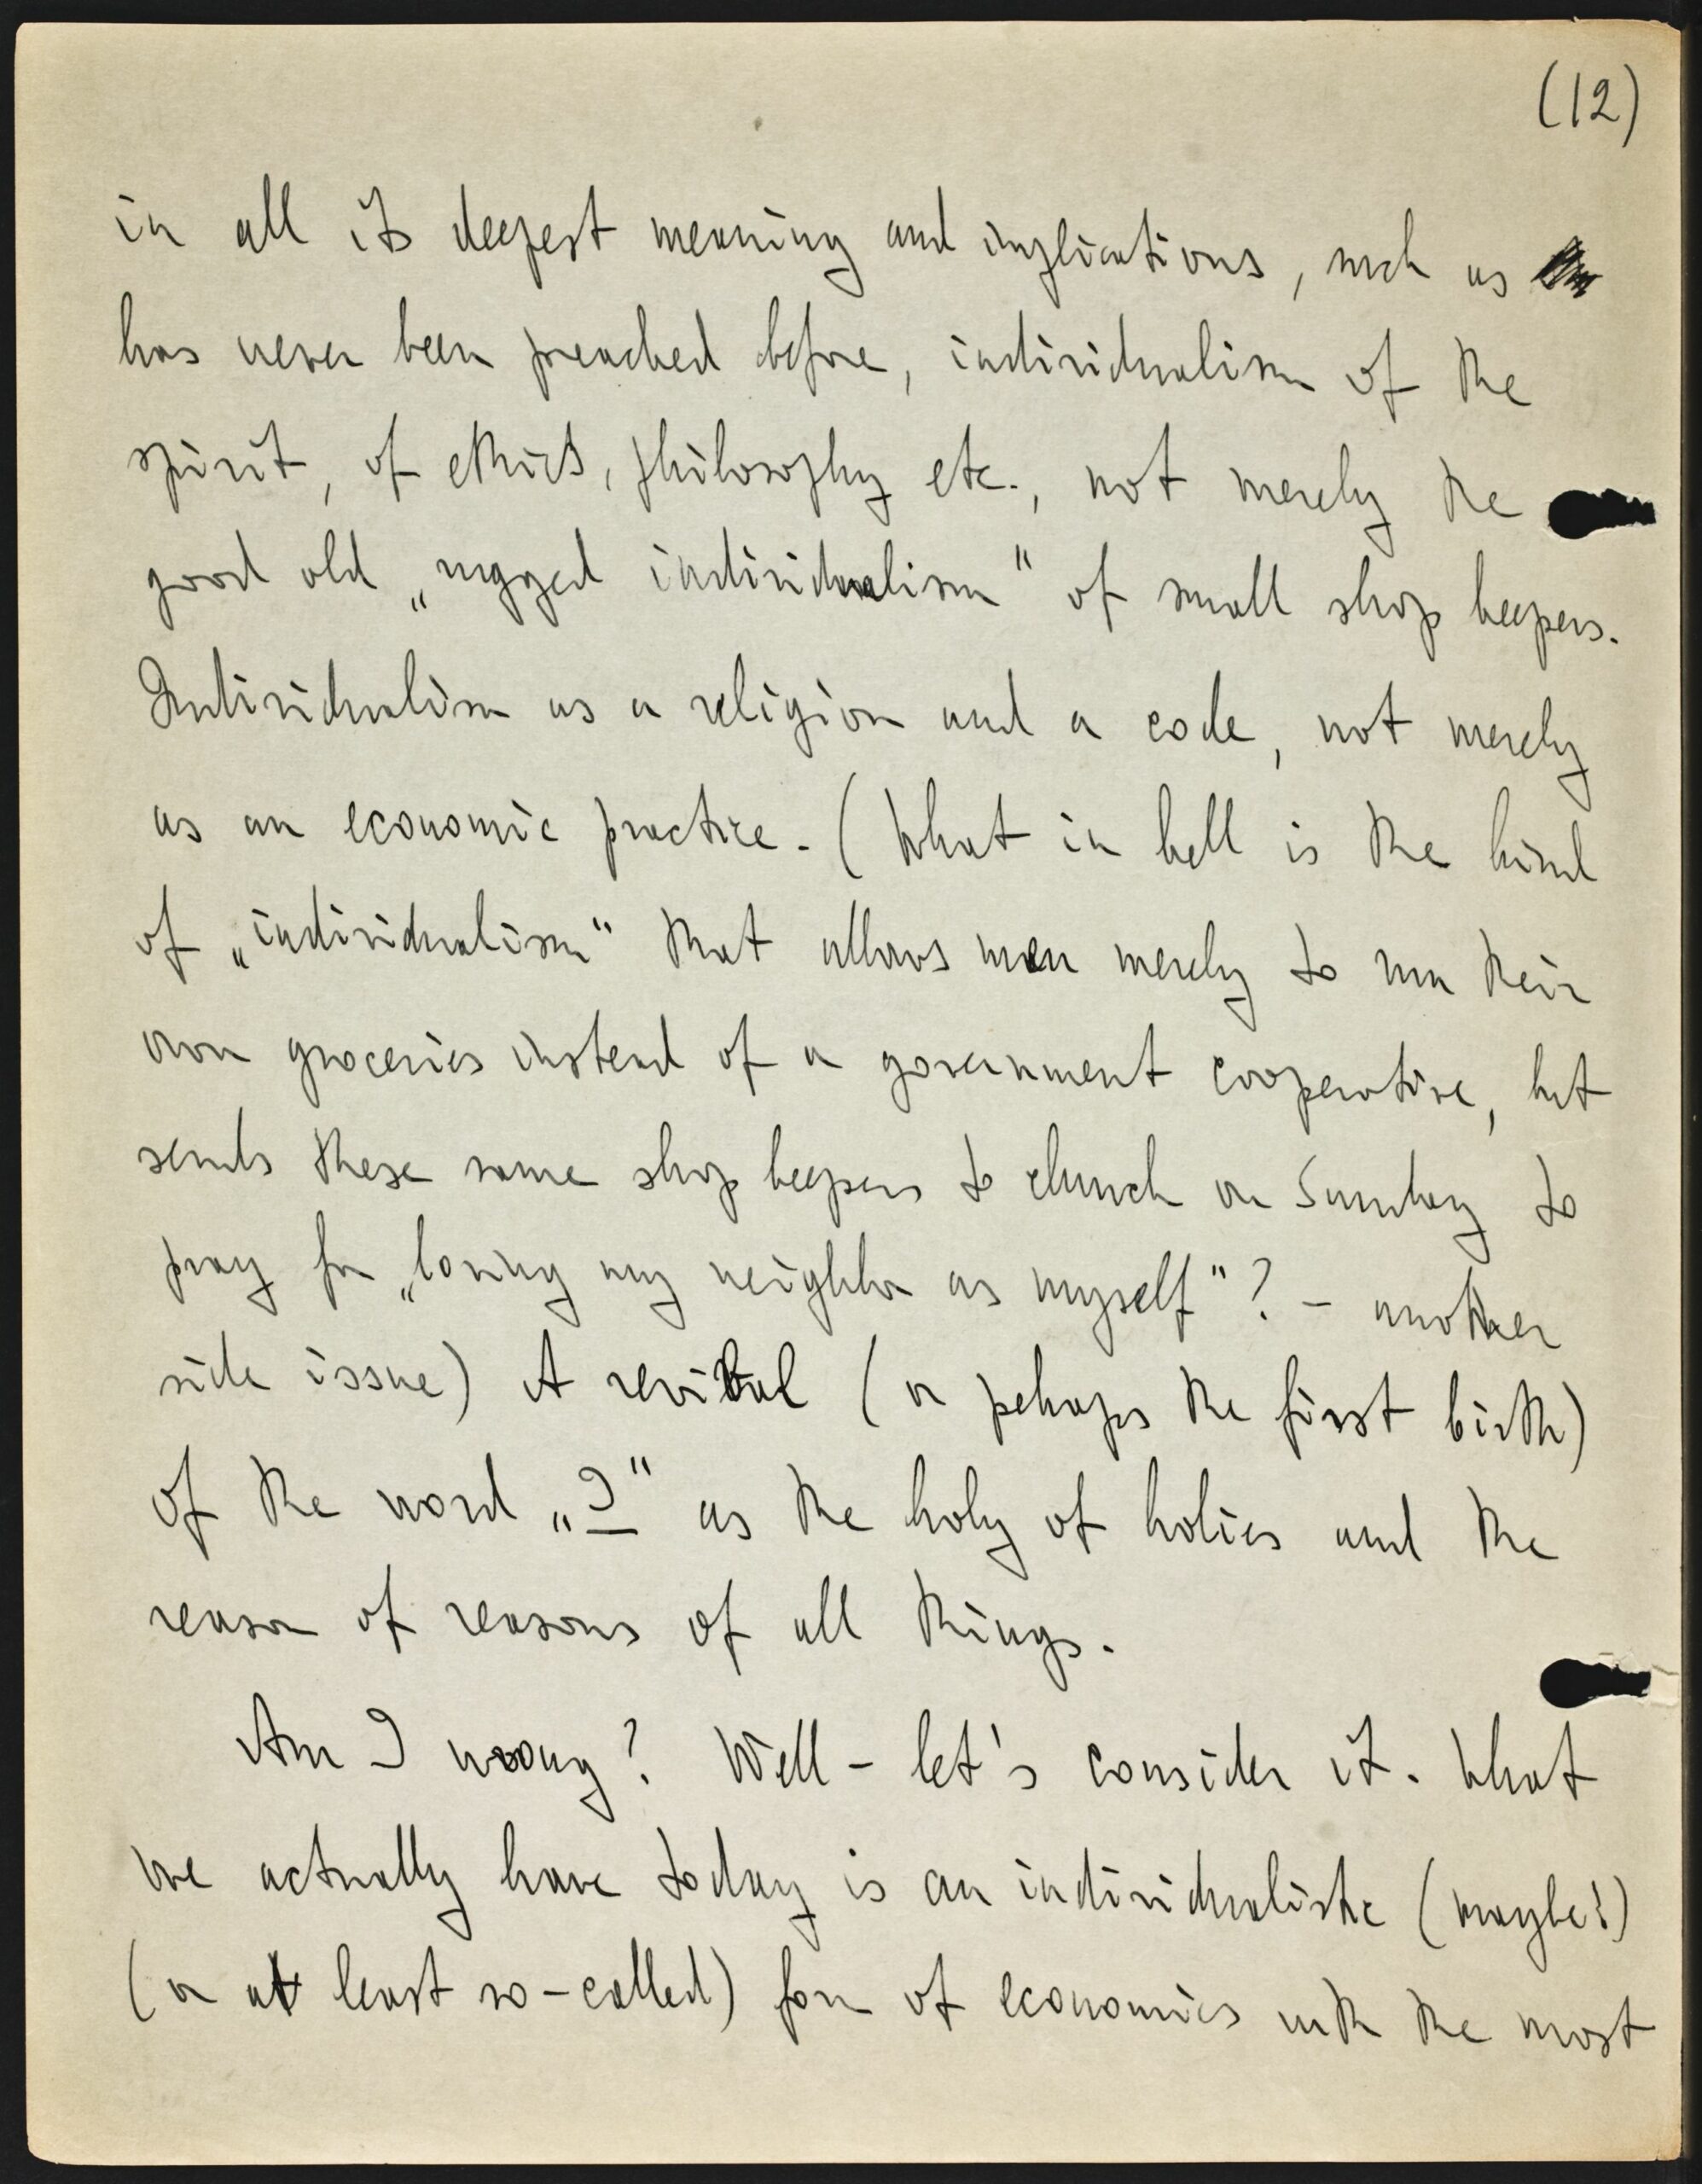 (12)
in all its deepest meaning and implications, such as
has never been preached before, individualism of the
spirit, of ethics, philosophy etc., not merely the
good old „rugged individualism" of small shop keepers.
Individualism as a religion and a code, not merely
as an economic practice. (What in hell is the kind
of „individualism" that allows men merely to run their
own groceries instead of a government cooperative, but
sends these same shop keepers to church on Sunday to
pray for „loving my neighbor as myself"? – another
side issue) A revival (or pehaps the first birth)
of the word „I" as the holy of holies and the
reason of reasons of all things.
Am I wrong? Well – let's consider it. What
we actually have today is an individualistic (maybe!)
(or at least so-called) form of economics with the most